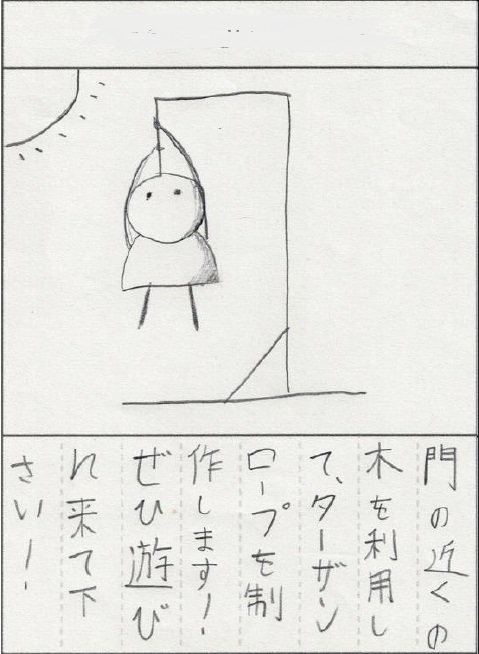 門の近くの
木を利用し
て、ターザン
ロープを制
作します！
ぜひ遊び
に来て下
さい！